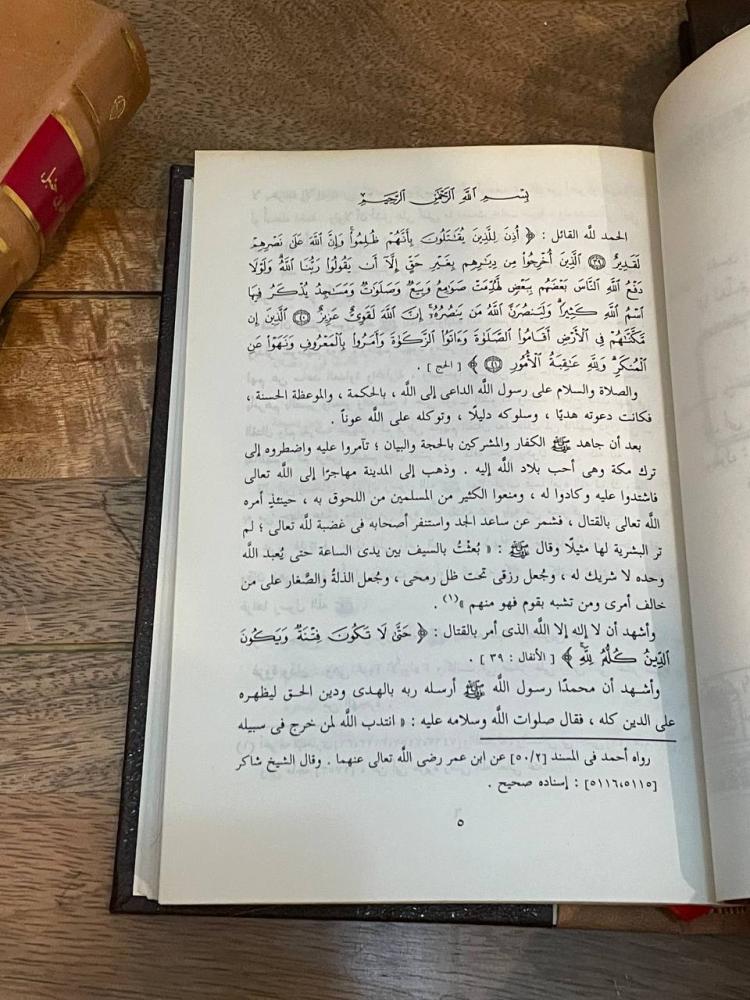 بِسْمِ اللَّهِ الرَّحْمَٰنِ الرَّحِيمِ
الحمد للَّه القائل : ﴿ أُذِنَ لِلَّذِينَ يُقَٰتَلُونَ بِأَنَّهُمْ ظُلِمُواْ وَإِنَّ اللَّهَ عَلَىٰ نَصْرِهِمْ
لَقَدِيرٌ ۝٣٩ الَّذِينَ أُخْرِجُواْ مِن دِيَٰرِهِم بِغَيْرِ حَقٍّ إِلَّآ أَن يَقُولُواْ رَبُّنَا اللَّهُ وَلَوْلَا
دَفْعُ اللَّهِ النَّاسَ بَعْضَهُم بِبَعْضٍ لَّهُدِّمَتْ صَوَٰمِعُ وَبِيَعٌ وَصَلَوَٰتٌ وَمَسَٰجِدُ يُذْكَرُ فِيهَا
اسْمُ اللَّهِ كَثِيرًا وَلَيَنصُرَنَّ اللَّهُ مَن يَنصُرُهُۥٓ إِنَّ اللَّهَ لَقَوِىٌّ عَزِيزٌ ۝٤٠ الَّذِينَ إِن
مَّكَّنَّٰهُمْ فِي الْأَرْضِ أَقَامُواْ الصَّلَوٰةَ وَءَاتَوُاْ الزَّكَوٰةَ وَأَمَرُواْ بِالْمَعْرُوفِ وَنَهَوْاْ عَنِ
الْمُنكَرِ وَلِلَّهِ عَٰقِبَةُ الْأُمُورِ ۝٤١ ﴾ [ الحج ] .
والصلاة والسلام على رسول اللَّه الداعى إلى اللَّه ، بالحكمة ، والموعظة الحسنة ،
فكانت دعوته هديًا ، وسلوكه دليلًا ، وتوكله على اللَّه عوناً .
بعد أن جاهد ﷺ الكفار والمشركين بالحجة والبيان ؛ تآمروا عليه واضطروه إلى
ترك مكة وهى أحب بلاد اللَّه إليه . وذهب إلى المدينة مهاجرًا إلى اللَّه تعالى
فاشتدوا عليه وكادوا له ، ومنعوا الكثير من المسلمين من اللحوق به ، حينئذٍ أمره
اللَّه تعالى بالقتال ، فشمر عن ساعد الجد واستنفر أصحابه فى غضبة للَّه تعالى ؛ لم
تر البشرية لها مثيلًا وقال ﷺ : « بعثتُ بالسيف بين يدى الساعة حتى يُعبد اللَّه
وحده لا شريك له ، وجُعل رزقى تحت ظل رمحى ، وجُعل الذلةُ والصَّغار على من
خالف أمرى ومن تشبه بقوم فهو منهم »(١) .
وأشهد أن لا إله إلا اللَّه الذى أمر بالقتال : ﴿ حَتَّىٰ لَا تَكُونَ فِتْنَةٌ وَيَكُونَ
الدِّينُ كُلُّهُ لِلَّهِ ﴾ [ الأنفال : ٣٩ ] .
وأشهد أن محمدًا رسول اللَّه ﷺ أرسله ربه بالهدى ودين الحق ليظهره
على الدين كله ، فقال صلوات اللَّه وسلامه عليه : « انتدب اللَّه لمن خرج فى سبيله
رواه أحمد فى المسند [٥٠/٢] عن ابن عمر رضى اللَّه تعالى عنهما . وقال الشيخ شاكر
[٥١١٦،٥١١٥] : إسناده صحيح .
٥